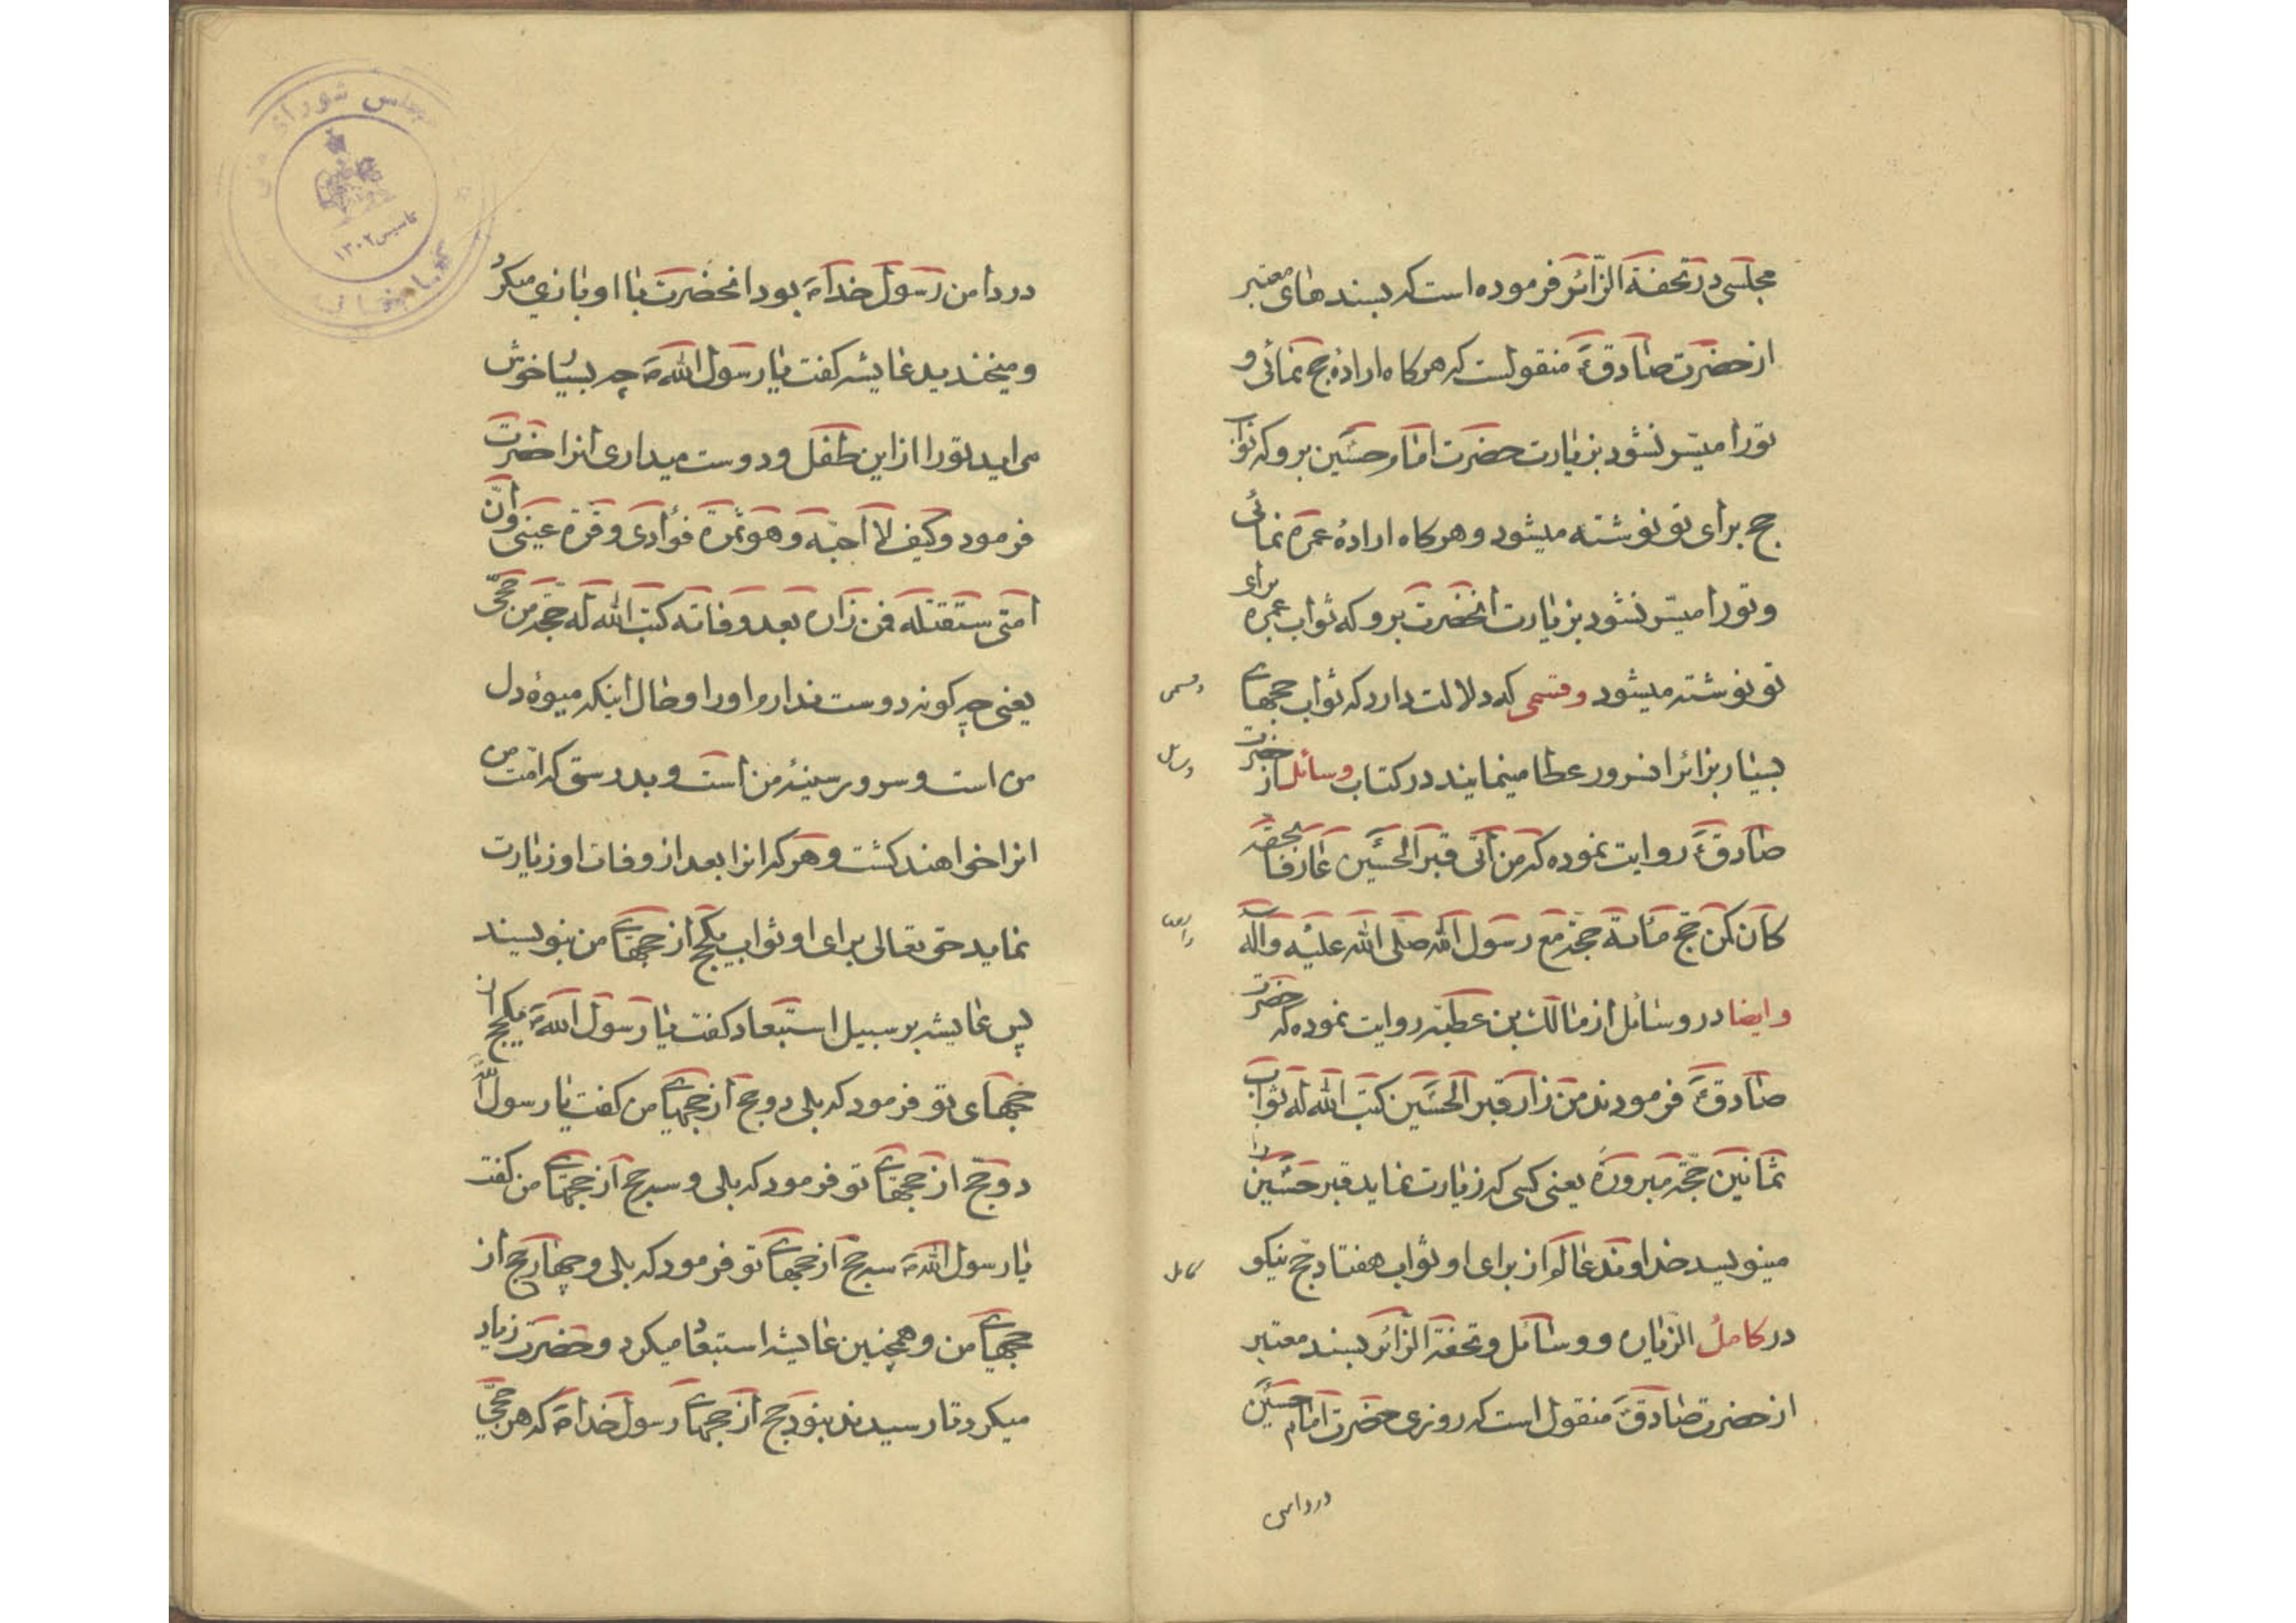 مجلسی در تحفة الزّائر فرموده است که بسندهای معتبر
از حضرت صادق ع منقولست که هرکاه ارادهٔ حج نمائی و
تورا میسّر نشود بزیارت حضرت امام حسین برو که ثواب
حج برای تو نوشته میشود و هرکاه ارادهٔ عمره نمائی
و تورا میسّر نشود بزیارت انحضرت برو که ثواب عمره برای
تو نوشته میشود و قسمی که دلالت دارد که ثواب حجهای
بسیار بزائر انسرور عطا مینمایند در کتاب وسائل از حضرت
صادق ع روایت نموده که من اتی قبر الحسین عارفا بحقه
کان کمن حج مائة حجّة مع رسول الله صلی الله علیه و آله
و ایضا در وسائل از مالک بن عطیّه روایت نموده که حضرت
صادق ع فرمودند من زار قبر الحسین کتب الله له ثواب
ثمانین حجّة مبرورة یعنی کسی که زیارت نماید قبر حسین را
مینویسد خداوند عالم از برای او ثواب هفتاد حج نیکو
در کامل الزیاره و وسائل و تحفة الزّائر بسند معتبر
از حضرت صادق ع منقول است که روزی حضرت امام حسین
در دامن
و قسمی
وسائل
و ایضا
کامل
در دامن رسول خدا ص بود انحضرت با او بازی میکرد
و میخندید عایشه کفت یا رسول الله ص چه بسیار خوش
می اید تورا از این طفل و دوست میداری انرا حضرت
فرمود و کیف لا احبّه و هو ثمرة فؤادی و قرّة عینی و انّ
امتی ستقتله فمن زاره بعد وفاته کتب الله له حجّة من حججی
یعنی چه کونه دوست ندارم اورا و حال اینکه میوهٔ دل
من است و سرور سینهٔ من است و بدرستی که امّت من
انرا خواهند کشت و هر که انرا بعد از وفات او زیارت
نماید حق تعالی برای او ثواب یکحج از حجهای من بنویسند
پس عایشه بر سبیل استبعاد کفت یا رسول الله ص یکحج از
حجهای تو فرمود که بلی دو حج از حجهای من کفت یا رسول الله
دو حج از حجهای تو فرمود که بلی و سه حج از حجهای من کفت
یا رسول الله ص سه حج از حجهای تو فرمود که بلی و چهار حج از
حجهای من و همچنین عایشه استبعاد میکرد و حضرت زیاد
میکرد تا رسیدند بنود حج از حجهای رسول خدا ص که هر حجّی
مجلس شورای
تاسیس ۱۳۰۲